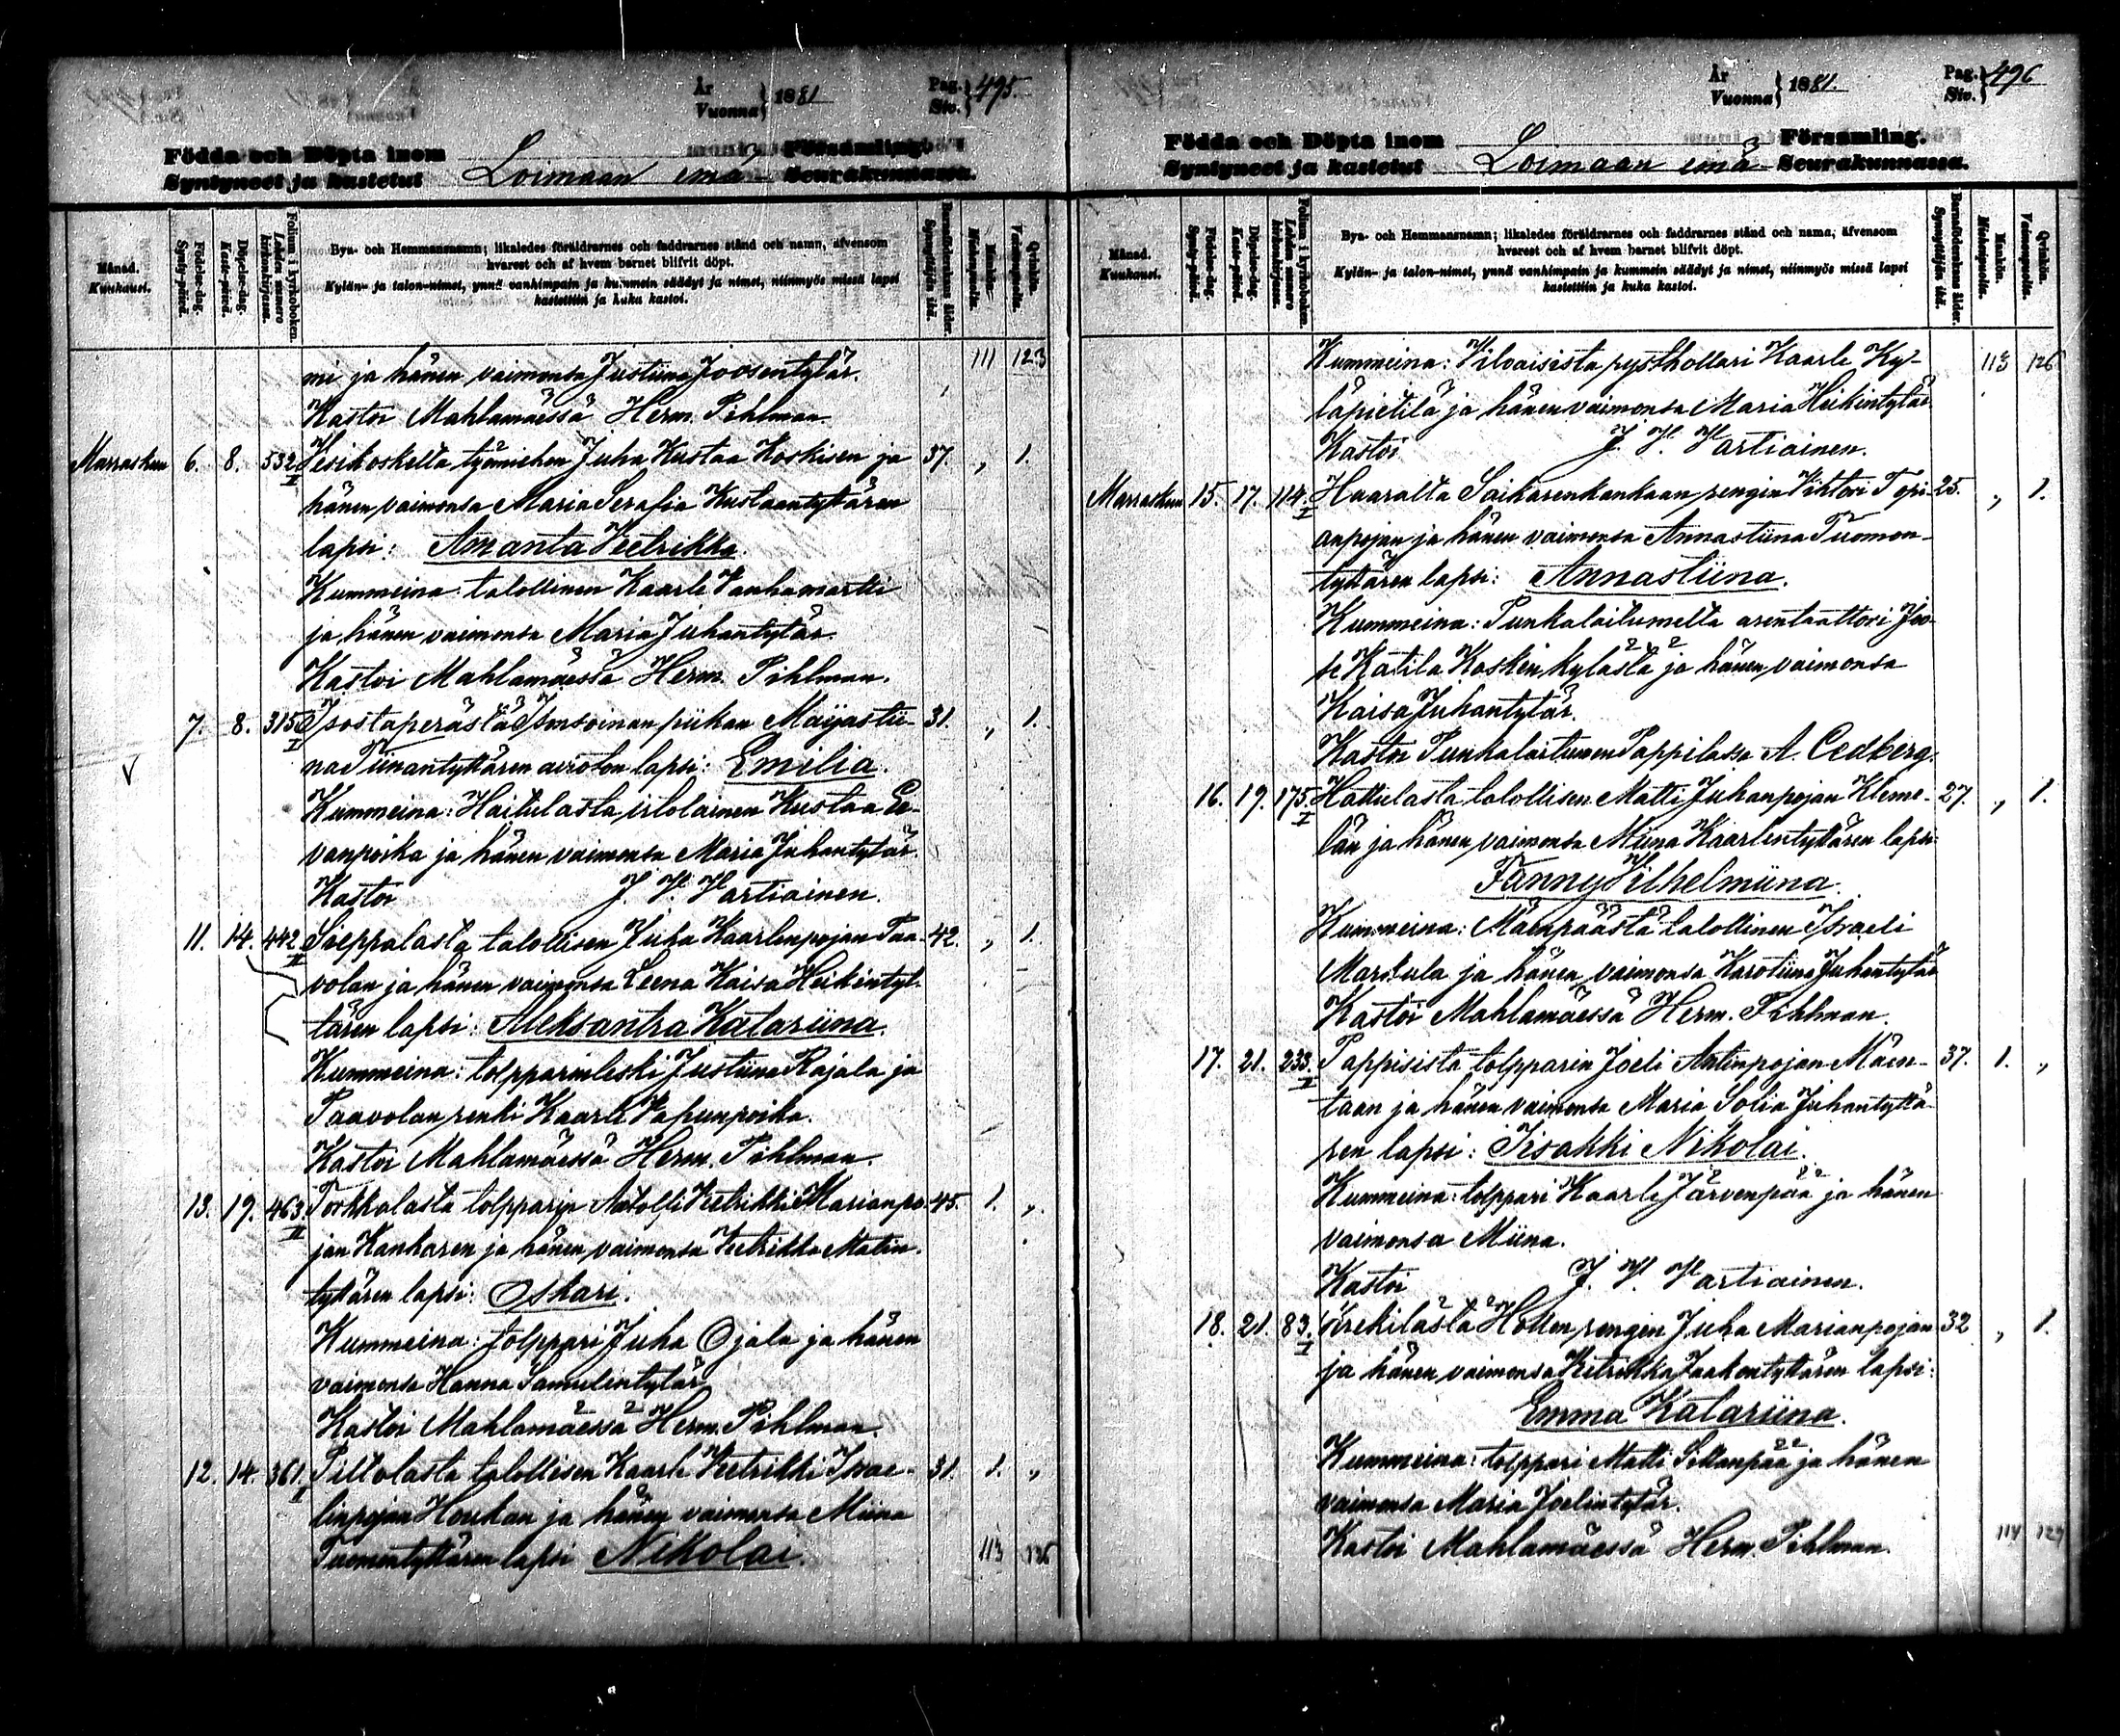 År Vuonna } 1881 Pag. Siv. } 495.
Födda och Döpta inom Församling.
Syntyneet ja kastetut Loimaan emä Seurakunnassa.
Månad. Kuukausi.
Födelse-dag. Synty-päivä.
Döpelse-dag. Kaste-päivä.
Folium i kyrkoboken. Lehden numero kirkonkirjassa.
Bya- och Hemmansnamn; likaledes föräldrarnes och faddrarnes stånd och namn, äfvensom
hvarest och af hvem barnet blifvit döpt.
Kylän- ja talon-nimet, ynnä vanhimpain ja kummein säädyt ja nimet, niinmyös missä lapsi
kastettiin ja kuka kastoi.
Barnaföderskans ålder. Synnyttäjän ikä.
Mankön. Miehenpuolia.
Qvinkön. Vaimonpuolia.
mi ja hänen vaimonsa Justiina Joosentytär. 111 123
Kastoi Mahlamäessä Herm. Pihlman.
Marraskuu 6. 8. 532 II Vesikoskelta työmiehen Juha Kustaa Koskisen ja 37. „ 1.
hänen vaimonsa Maria Serafia Kustaantyttären
lapsi: Amanta Veetrikka.
Kummeina: talollinen Kaarle Vanhamartti
ja hänen vaimonsa Maria Juhantytär.
Kastoi Mahlamäessä Herm. Pihlman.
7. 8. 315 I Isostaperästä Isonsoinan piikan Maijastii- 31. „ 1.
na Tiinantyttären avioton lapsi: Emilia.
Kummeina: Haitulasta itstolainen Kustaa Ee-
vanpoika ja hänen vaimonsa Maria Juhantytär.
Kastoi J. V. Vartiainen.
11. 14. 442 II Sieppalasta talollisen Juha Kaarlenpojan Paa- 42. „ 1.
volan ja hänen vaimonsa Leena Kaisa Heikintyt-
tären lapsi: Aleksantra Katariina.
Kummeina: tolpparinleski Justiina Rajala ja
Paavolan renki Kaarle Vapunpoika.
Kastoi Mahlamäessä Herm. Pihlman.
13. 19. 463. II Torkkalasta tolpparin Aatolfi Veetrikki Marianpo- 45. 1. „
jan Kankaren ja hänen vaimonsa Veetrikka Matin-
tyttären lapsi: Oskari.
Kummeina: tolppari Juha Ojala ja hänen
vaimonsa Hanna Samulintytär
Kastoi Mahlamäessä Herm. Pihlman.
12. 14. 361. II Piltolasta talollisen Kaarle Veetrikki Israe- 31. 1. „
linpojan Houkan ja hänen vaimonsa Miina
Tuomentyttären lapsi Nikolai. 113 126
År Vuonna } 1881. Pag. Siv. } 496
Födda och Döpta inom Församling.
Syntyneet ja kastetut Loimaan emä Seurakunnassa.
Månad. Kuukausi.
Födelse-dag. Synty-päivä.
Döpelse-dag. Kaste-päivä.
Folium i kyrkoboken. Lehden numero kirkonkirjassa.
Bya- och Hemmansnamn; likaledes föräldrarnes och faddrarnes stånd och namn, äfvensom
hvarest och af hvem barnet blifvit döpt.
Kylän- ja talon-nimet, ynnä vanhimpain ja kummein säädyt ja nimet, niinmyös missä lapsi
kastettiin ja kuka kastoi.
Barnaföderskans ålder. Synnyttäjän ikä.
Mankön. Miehenpuolia.
Qvinkön. Vaimonpuolia.
Kummeina: Vilvaisista pysthollari Kaarle Ky- 113 126
läpietilä ja hänen vaimonsa Maria Heikintytär
Kastoi J. V. Vartiainen.
Marraskuu 15. 17. 114. I Haaralta Saikarenkankaan rengin Vihtori Topi- 25. „ 1.
anpojan ja hänen vaimonsa Annastiina Tuomon-
tyttären lapsi: Annastiina.
Kummeina: Punkalaitumelta arentaattori Joo-
se Katila Kosken kylästä ja hänen vaimonsa
Kaisa Juhantytär.
Kastoi Punkalaitumen Pappilassa A. Cedberg.
16. 19. 175. I Hattulasta talollisen Matti Juhanpojan Kleme- 27. „ 1.
län ja hänen vaimonsa Miina Kaarlentyttären lapsi
Fanny Vilhelmiina.
Kummeina: Mäenpäästä talollinen Israeli
Marttula ja hänen vaimonsa Karoliina Juhantytär
Kastoi Mahlamäessä Herm. Pihlman.
17. 21. 233. I Pappisista tolpparin Joeli Antinpojan Mäen- 37. 1. „
taan ja hänen vaimonsa Maria Sofia Juhantyttä-
ren lapsi: Iisakki Nikolai.
Kummeina: tolppari Kaarle Järvenpää ja hänen
vaimonsa Miina.
Kastoi J. V. Vartiainen.
18. 21. 83. I Krekilästä Hollen rengin Juha Marianpojan 32 „ 1.
ja hänen vaimonsa Veetrikka Jaakontyttären lapsi:
Emma Katariina.
Kummeina: tolppari Matti Sillanpää ja hänen
vaimonsa Maria Joelintytär.
Kastoi Mahlamäessä Herm. Pihlman. 114 129